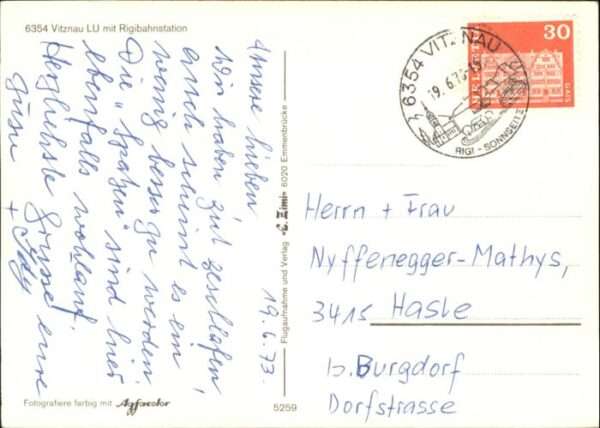 6354 Vitznau LU mit Rigibahnstation
Unsere lieben
Wir haben gut geschlafen,
auch scheint es ein
wenig besser zu werden.
Die „Spatzen" sind hier
ebenfalls wohlauf.
Herzlichste Grüsse eure
+ Idy
19.6.73.
Fotografiere farbig mit Agfacolor
Flugaufnahme und Verlag E. Zimi 6020 Emmenbrücke
5259
6354 VITZNAU
19.6.73
RIGI - SONNSEITE
HELVETIA
30
GAIS
Herrn + Frau
Nyffenegger-Mathys,
3415 Hasle
b. Burgdorf
Dorfstrasse